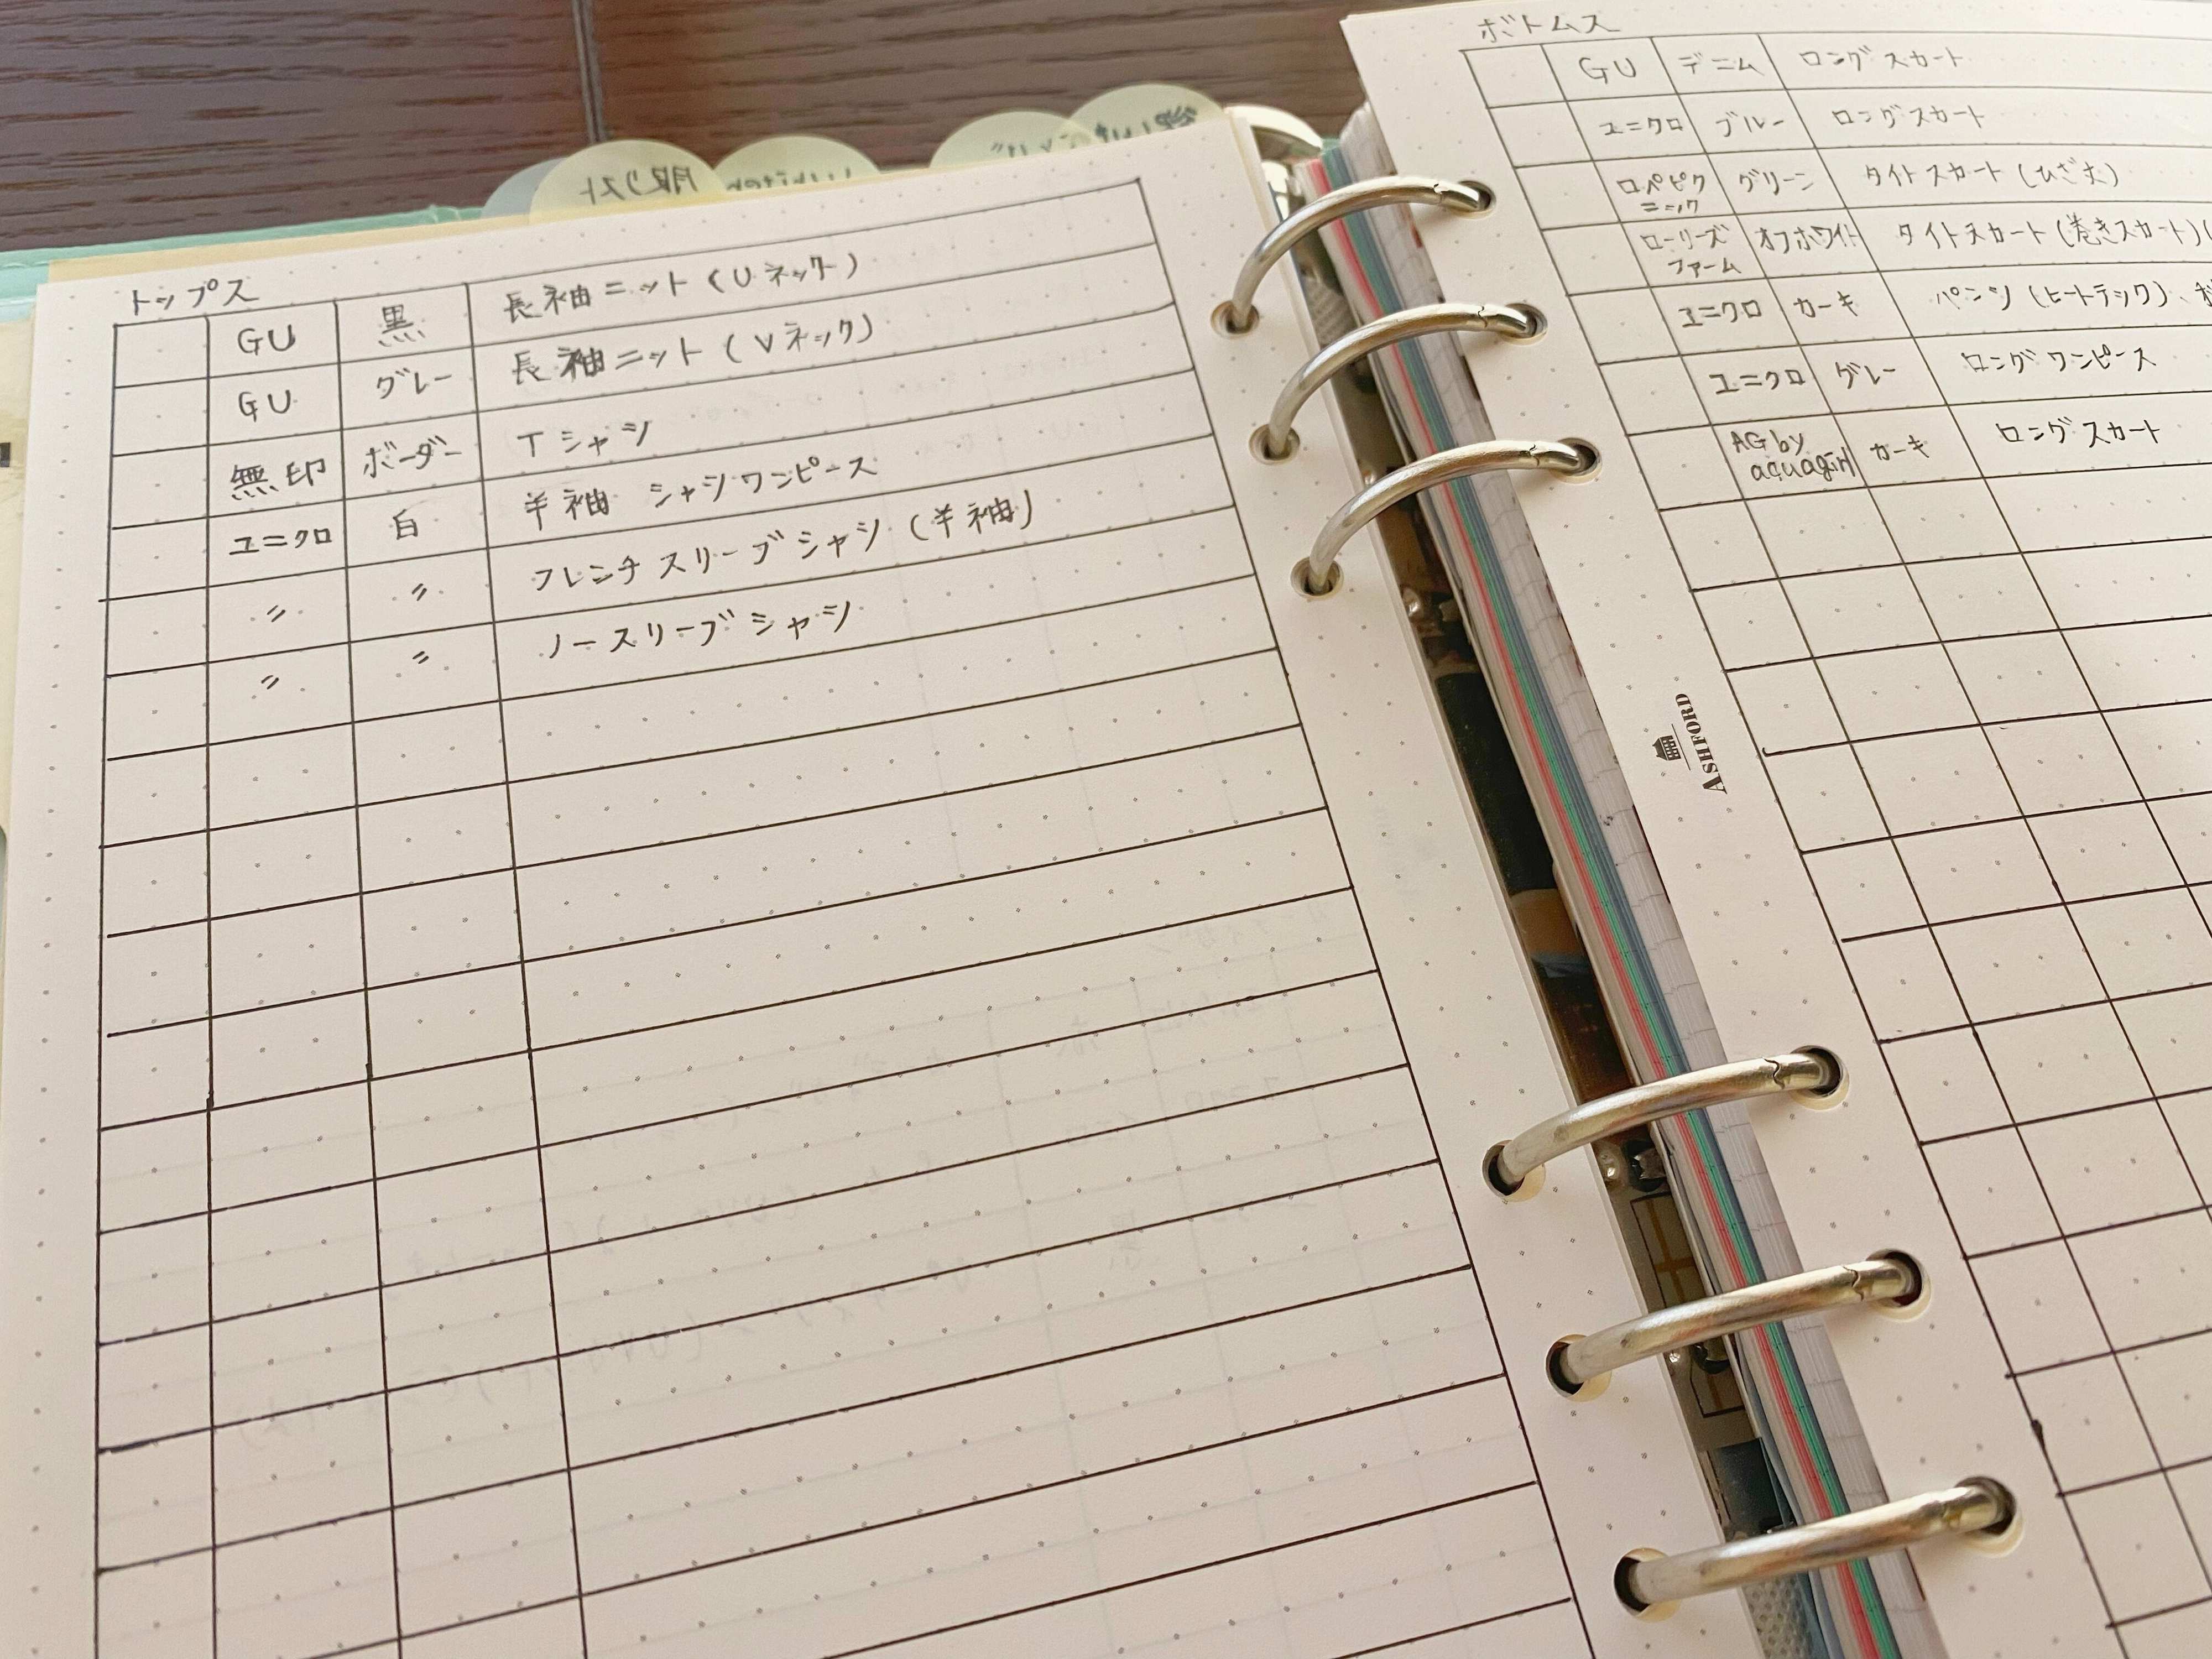 服リスト
トップス
GU 黒 長袖ニット(Uネック)
GU グレー 長袖ニット(Vネック)
無印 ボーダー Tシャツ
ユニクロ 白 半袖 シャツワンピース
〃 〃 フレンチスリーブシャツ(半袖)
〃 〃 ノースリーブシャツ
ボトムス
GU デニム ロングスカート
ユニクロ ブルー ロングスカート
ロペピクニック グリーン タイトスカート(ひざ丈)
ローリーズファーム オフホワイト タイトスカート(巻きスカート)(
ユニクロ カーキ パンツ(ヒートテック)、
ユニクロ グレー ロングワンピース
AG by aquagirl カーキ ロングスカート
ASHFORD